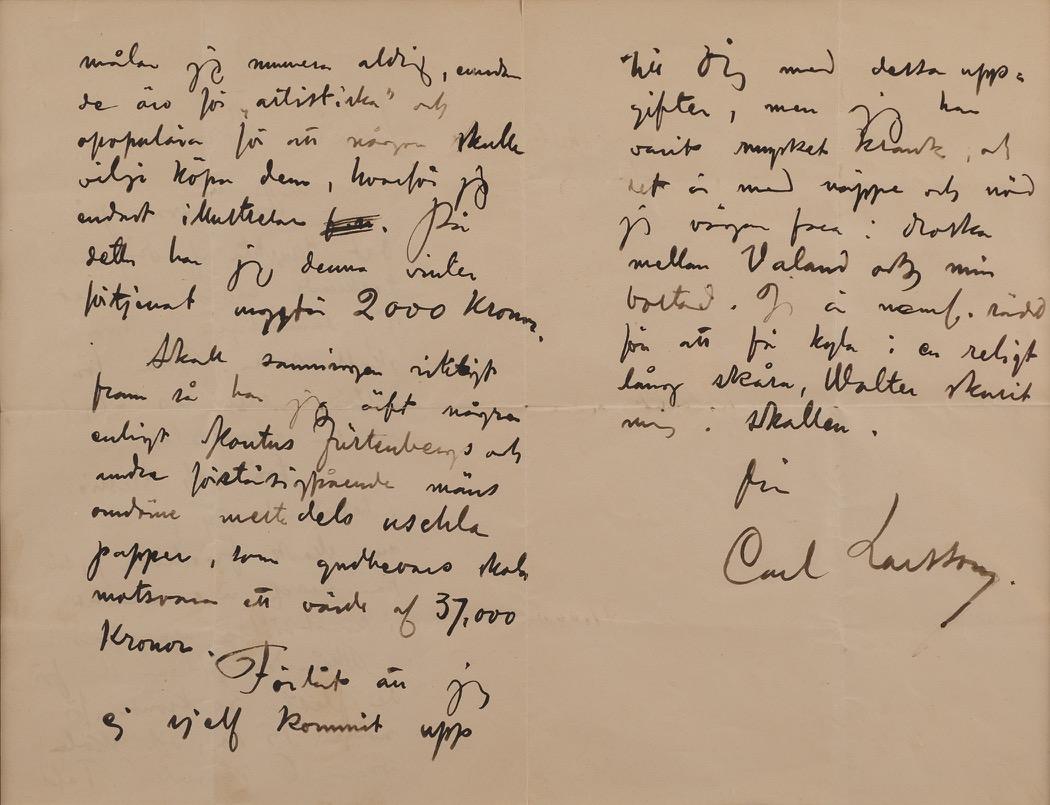 målar jag numera aldrig, emedan
de äro för "artistiska" och
opopulära för att någon skulle
vilja köpa dem, hvarför jag
endast illustrerar. På
detta har jag denna vinter
förtjenat ungefär 2000 Kronor.
Skall sanningen riktigt
fram så har jag ärft några
enligt Pontus Fürstenbergs och
andra förståsigpående mäns
omdöme mestedels uschla
papper, som gudbevars skola
motsvara ett värde af 37,000
Kronor.
Förlåt att jag
ej sjelf kommit upp
till Dig med dessa upp=
gifter, men jag har
varit mycket krank, och
det är med näppe och nöd
jag vågar fara i droska
mellan Valand och min
bostad. Jag är nemf. rädd
för att få kyla i en religt
lång skåra, Walter skurit
mig i skallen.
Din
Carl Larsson.